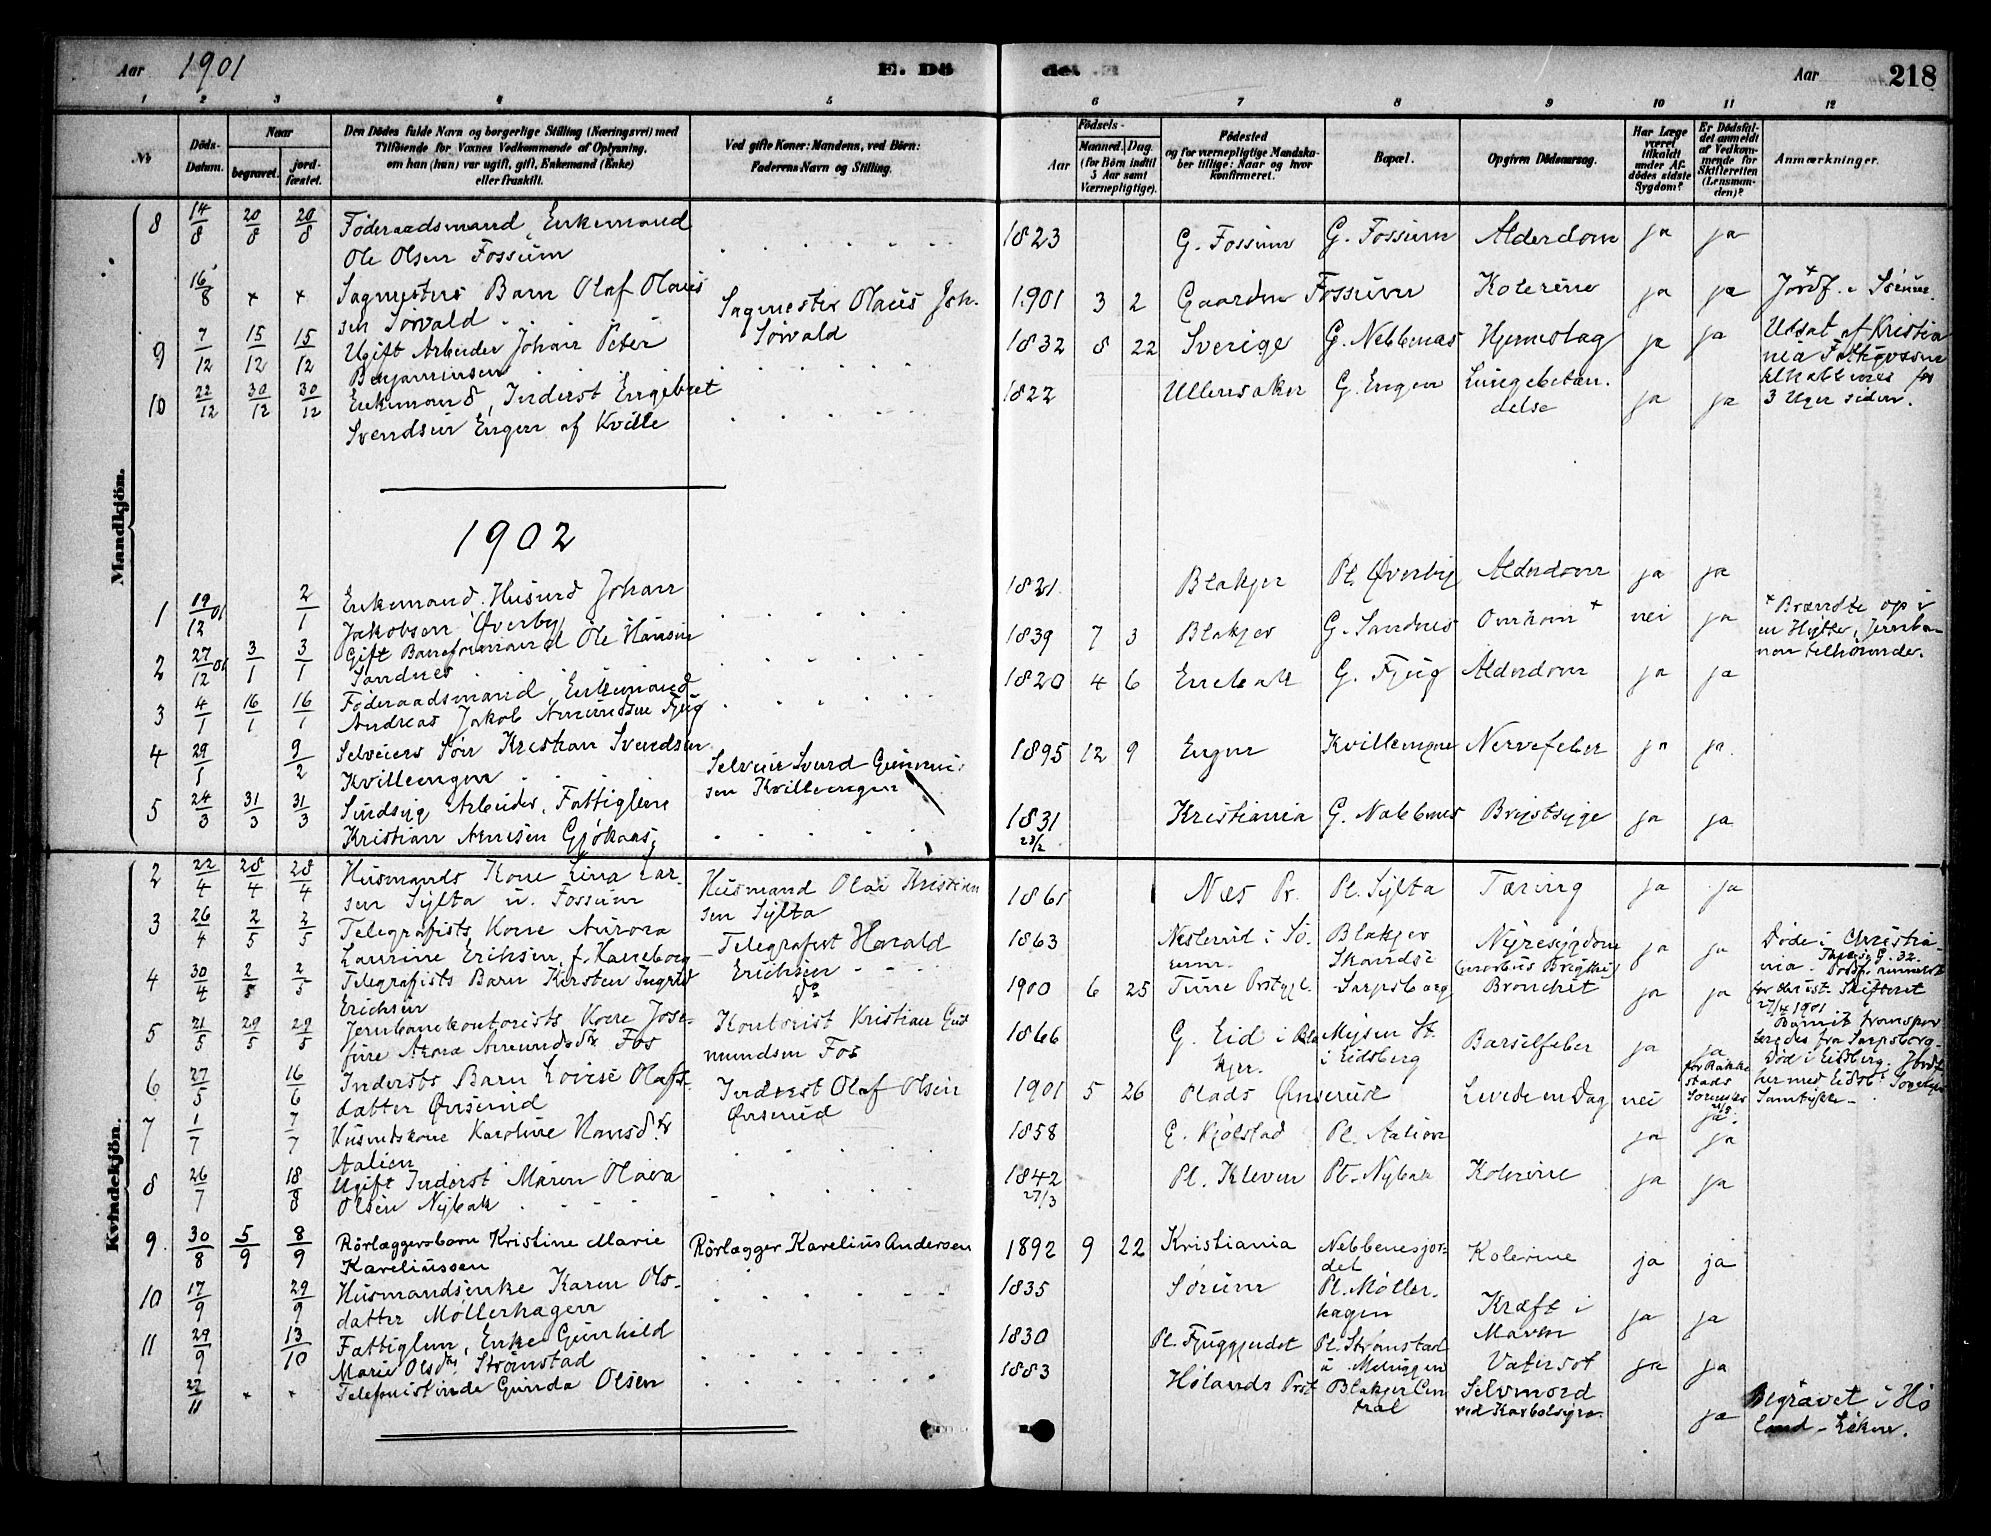 Aar 1901 E. Dö
de. E Aar 218
1 2 3 4 5 6 7 8 9 10 11 12
Nr
Döds-Datum.
Naar
begravet.
jordfæstet.
Den Dödes fulde Navn og borgerlige Stilling (Næringsvei) med
Tilföiende for Voxnes Vedkommende af Oplysning,
om han (hun) var ugift, gift, Enkemand (Enke)
eller fraskilt.
Ved gifte Koner: Mandens, ved Börn:
Faderens Navn og Stilling.
Födsels-
Aar
Maaned. Dag.
(for Börn indtil
5 Aar samt
Værnepligtige).
Födested
og for værnepligtige Mandska-
ber tillige: Naar og hvor
konfirmeret.
Bopæl.
Opgiven Dödsaarsag.
Har Læge
været
tilkaldt
under Af-
dödes sidste
Sygdom?
Er Dödsfal-
det anmeldt
af Vedkom-
mende for
Skifteretten
(Lensman-
den)?
Anmærkninger.
Mandkjön.
8 14/8 20/8 20/8 Føderaadsmand, Enkemand
Ole Olsen Fossum
1823 G. Fossum G. Fossum Alderdom ja ja
16/8 + + Sagmesters Barn Olaf Olaus
sen Sørvald
Sagmester Olaus Joh.
Sørvald
1901 3 2 Gaarden Fossum Kolerine ja ja Jordf. i Sørum.
9 7/12 15/12 15/12 Ugift Arbeider Johan Peter
Benjaminsen
1832 8 22 Sverige G. Nebbenæs Hjerneslag ja ja Udsat af Kristia
nia Fattigvæsen
3 Uger siden.
10 22/12 30/12 30/12 Enkemand, Inderst Engebret
Svendsen Engen af Kville
1822 Ullensaker G. Engen Lungebetæn.
delse ja ja
1902
1 19/12 01 2/1 Enkemand Husmd Johan
Jakobsen Øverby
1821 Blakjer Pl. Øverby Alderdom ja ja
2 27/12 01 3/1 3/1 Gift Baneformand Ole Hansen
Sandnes
1839 7 3 Blakjer G. Sandnes Omkom + nei ja + Brændte op i
en Hytte, Jernba-
nen tilhørende.
3 4/1 16/1 16/1 Føderaadsmand, Enkemand
Andreas Jakob Amundsen Fjug
1820 4 6 Enebak G. Fjug Alderdom ja ja
4 29/1 9/2 Selveiers Søn Kristian Svendsen
Kvilleengen
Selveier Svend Gunnerius
sen Kvilleengen
1895 12 9 Engen Kvilleengen Nervefeber ja ja
5 24/3 31/3 31/3 Sindssyg Arbeider, Fattiglem
Kristian Arnesen Gjøkaas
1831
23/2 Kristiania G. Nebbenes Brystsyge ja ja
Kvindekjön.
2 22/4 28/4 28/4 Husmands Kone Lina Lar-
sen Sylta u. Fossum
Husmand Olai Kristian
sen Sylta
1865 Næs Pr. Pl. Sylta Tæring ja ja
3 26/4 2/5 2/5 Telegrafists Kone Aurora
Laurine Erichsen, f. Kaneborg
Telegrafist Harald
Erichsen
1863 Neslerud i Sø-
rum Blakjer
Skandse Nyresygdom
(morbus Brigthii) ja ja Døde i Christia
nia.
4 30/4 2/5 2/5 Telegrafists Barn Kirsten Ingrid
Erichsen
Do
1900 6 25 Tune Prstgjl. Sarpsborg Bronchit ja ja
for Christ. Skifteret
27/4 1901
5 21/5 29/5 29/5 Jernbanekontorists Kone Jose-
fine Amundsdtr Fos
Kontorist Kristian Gud
mundsen Fos
1866 G. Eid i Bla
kjer. Mysen St.
i Eidsberg Barselfeber ja ja
Død i Eidsberg. Jordf
her med Eidsb. Sogneprs
Samtykke.
6 27/5 16/6 Indersts Barn Lovise Olafs-
datter Ønserud
Inderst Olaf Olsen
Ønserud
1901 5 26 Plads Ønserud Levede en Dag nei ja
7 1/7 7/7 Husmdskone Karoline Hansdtr
Aalien
1858 G. Kjølstad Pl. Aalien ja ja
8 26/7 18/8 Ugift Inderst Maren Olava
Olsen Nybak
1842
27/3 Pl. Kleven Pl. Nybak Kolerine ja ja
9 30/8 5/9 8/9 Rörlæggersbarn Kristine Marie
Kareliussen
Rörlægger Karelius Andersen
1892 9 22 Kristiania Nebbenesjor-
det Kolerine ja ja
10 17/9 29/9 Husmandsenke Karen Ols-
datter Møllerhagen
1835 Sørum Pl. Møller-
hagen Kræft i
Maven ja ja
11 29/9 13/10 Fattiglem, Enke Gunhild
Marie Olsdtr Strømstad
1830 Pl. Fjuggjendet Pl. Strømstad
u. Vatersot ja ja
22/11 + + Telefonistinde Gunda Olsen
1883 Hølands Prst Blakjer Cen
tral Selvmord
ved Karbolsyre. ja Begravet i Hø
land - Løken.